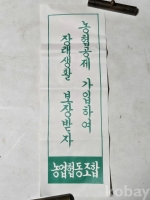 농협공제 가입하여
장래생활 보장받자
농업협동조합
kobay